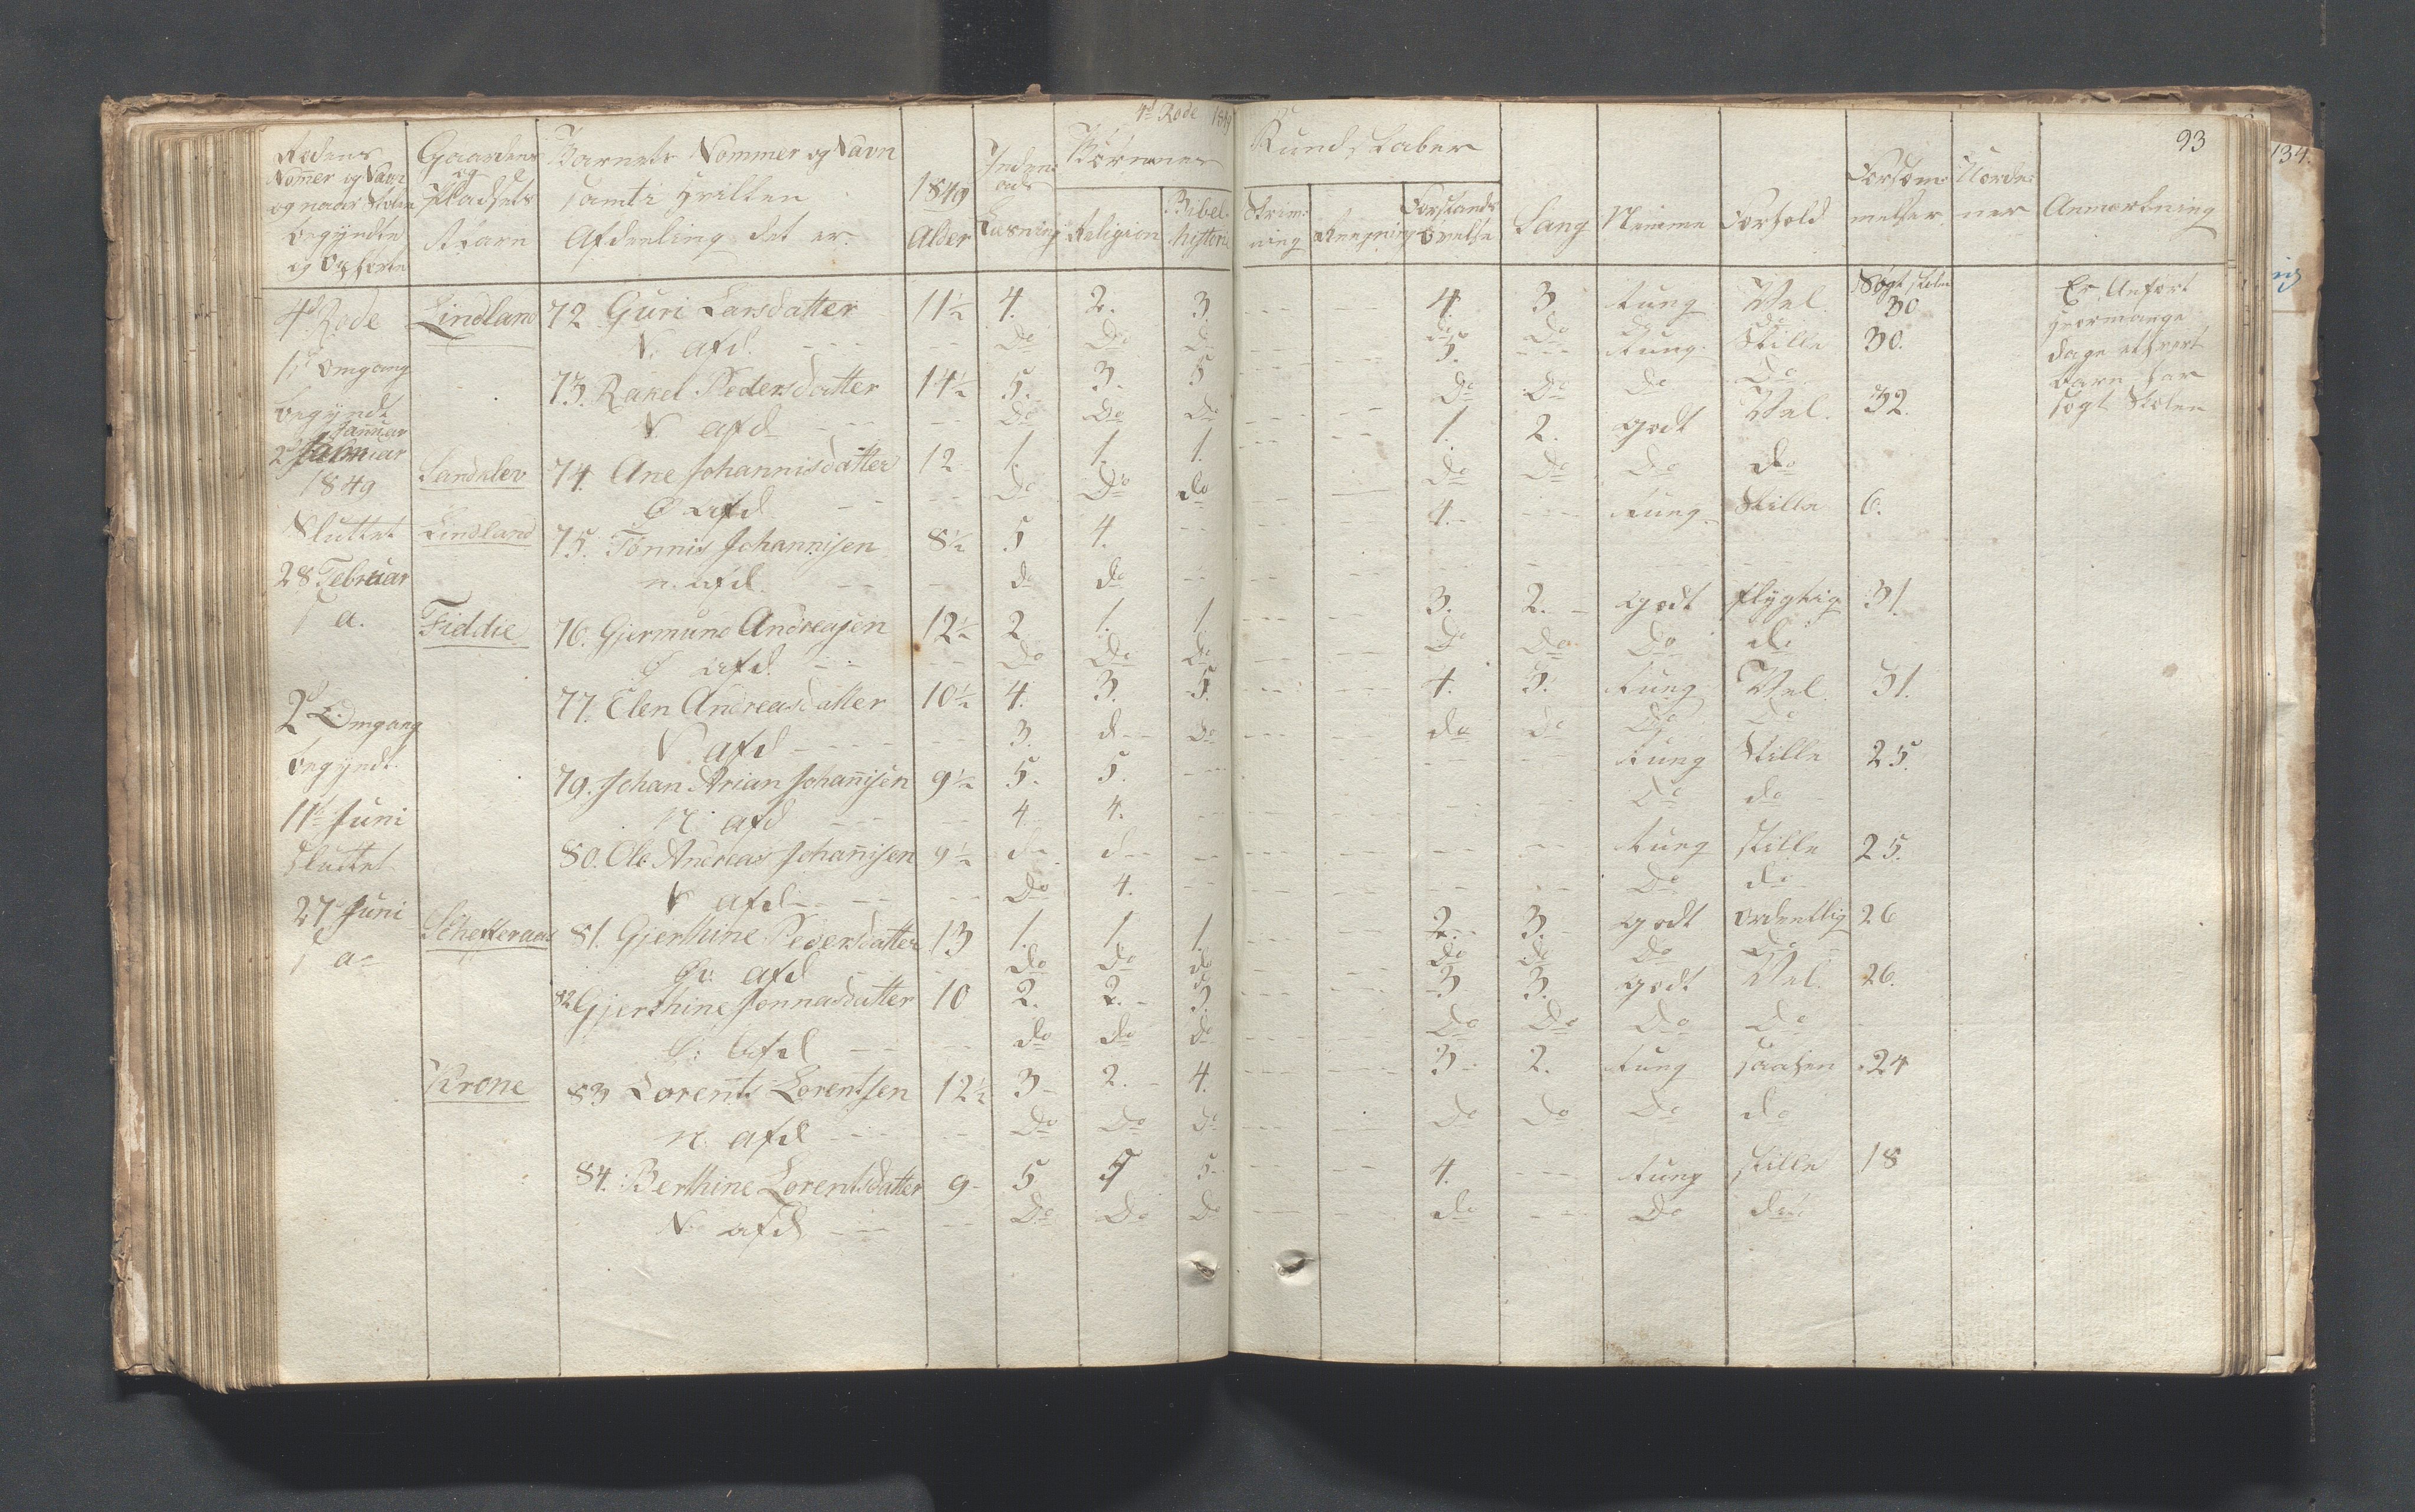 4d Rode 1849
93
Rodens Nommer og Navn og naar Skolen begyndte og Ophørte
Gaardens og Pladsets Navn
Barnets Nommer og Navn samt i hvilken Afdeeling det er.
1849 Alder
Inden ad Læsning
Børnenes Kundskaber
Religion
Bibel historie
Skrivning
Regning
Forstands øvelse
Sang
Nemme
Forhold
Forsømmelser
Anmærkning
4d Rode Lindland 72 Guri Larsdatter 11½ 4. 2. 3 --- --- 4. 3 tung Vel. Søgt Skolen 30
V. afd. --- -- do Do D --- do Do
1st Omgang 73. Rakel Pedersdatter 14½ 5. 3. 5 --- 5. --- tung. Stille 30.
begyndt V. afd --- -- do do do -- Do Do Do Do
Januar
2d Januar Sandklev 74. Ane Johannisdatter 12 1. 1. 1. --- -- 1. 2. godt Vel. 32.
1849 Ø afd -- -- Do Do do do Do Do do
Sluttet Lindland 75. Tønnis Johannisen 8½ 5 4. -- --- 4.. --- tung Stille 6.
28 Februar n. afd. -- do do --
1 a. Fiddie 76. Gjermund Andreasen 12½ 2 1. 1 --- --- 3. 2. - Godt flygtig 31.
Ø afd. -- -- Do Do Do do Do Do do
77. Elen Andreasdatter 10½ 4. 3. 5. --- --- 4. 3. tung Vel. 31.
2d Omgang V afd --- -- 3. d-- do --- do do Do Do
begyndt 79. Johan Arian Johannisen 9½ 5. 5. --- --- tung Stille 25.
11te Juni N. afd --- -- 4. 4. -- Do do
sluttet 80. Ole Andreas Johannisen 9½ d-- d-- -- --- tung stille 25.
V afd -- -- Do 4. -- Do do
27 Juni Schefteraas 81. Gjerthine Pedersdatter 13 1. 1 1 --- 2. 3. godt ordentlig 26
1 a Ø: afd -- Do Do do do do Do Do
82 Gjerthine Jonnasdatter 10 2. 2. - 3. --- 3 3. godt Vel. 26.
Ø: afd -- -- do do do --- Do Do Do Do
Krone 83 Lorents Lorentsen 12½ 3 - 2. - 4. --- 3 - 2. tung 24
n. afd --- -- Do Do do --- do do Do do
84. Berthine Lorentsdatter 9 - 5 5 5 -- --- 4. --- tung stille 18
N: afd --- -- Do Do Do --- do --- Do do
Er Anført hvormange dage ethvert barn har søgt Skolen
134.